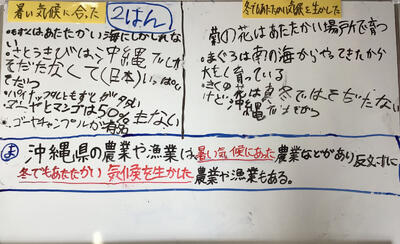 暑い気候に合った
2はん
・もずくはあたたかい海にしかとれない
・さとうきびは、沖縄でしか
そだたなくて(日本)いっぱい
そだつ
・パイナップルともずくが多い
・ゴーヤとマンゴは50%もない
・ゴーヤチャンプルが有名
冬でもあたたかい気候を生かした
菊の花はあたたかい場所で育つ
・まぐろは南の海からやってきたから
大きく育っている
・きくの
けど、花は真冬ではそだたない
沖縄だときから
ま 沖縄県の農業や漁業は、暑い気候にあった農業などがあり反対に
冬でもあたたかい気候を生かした農業や漁業もある。